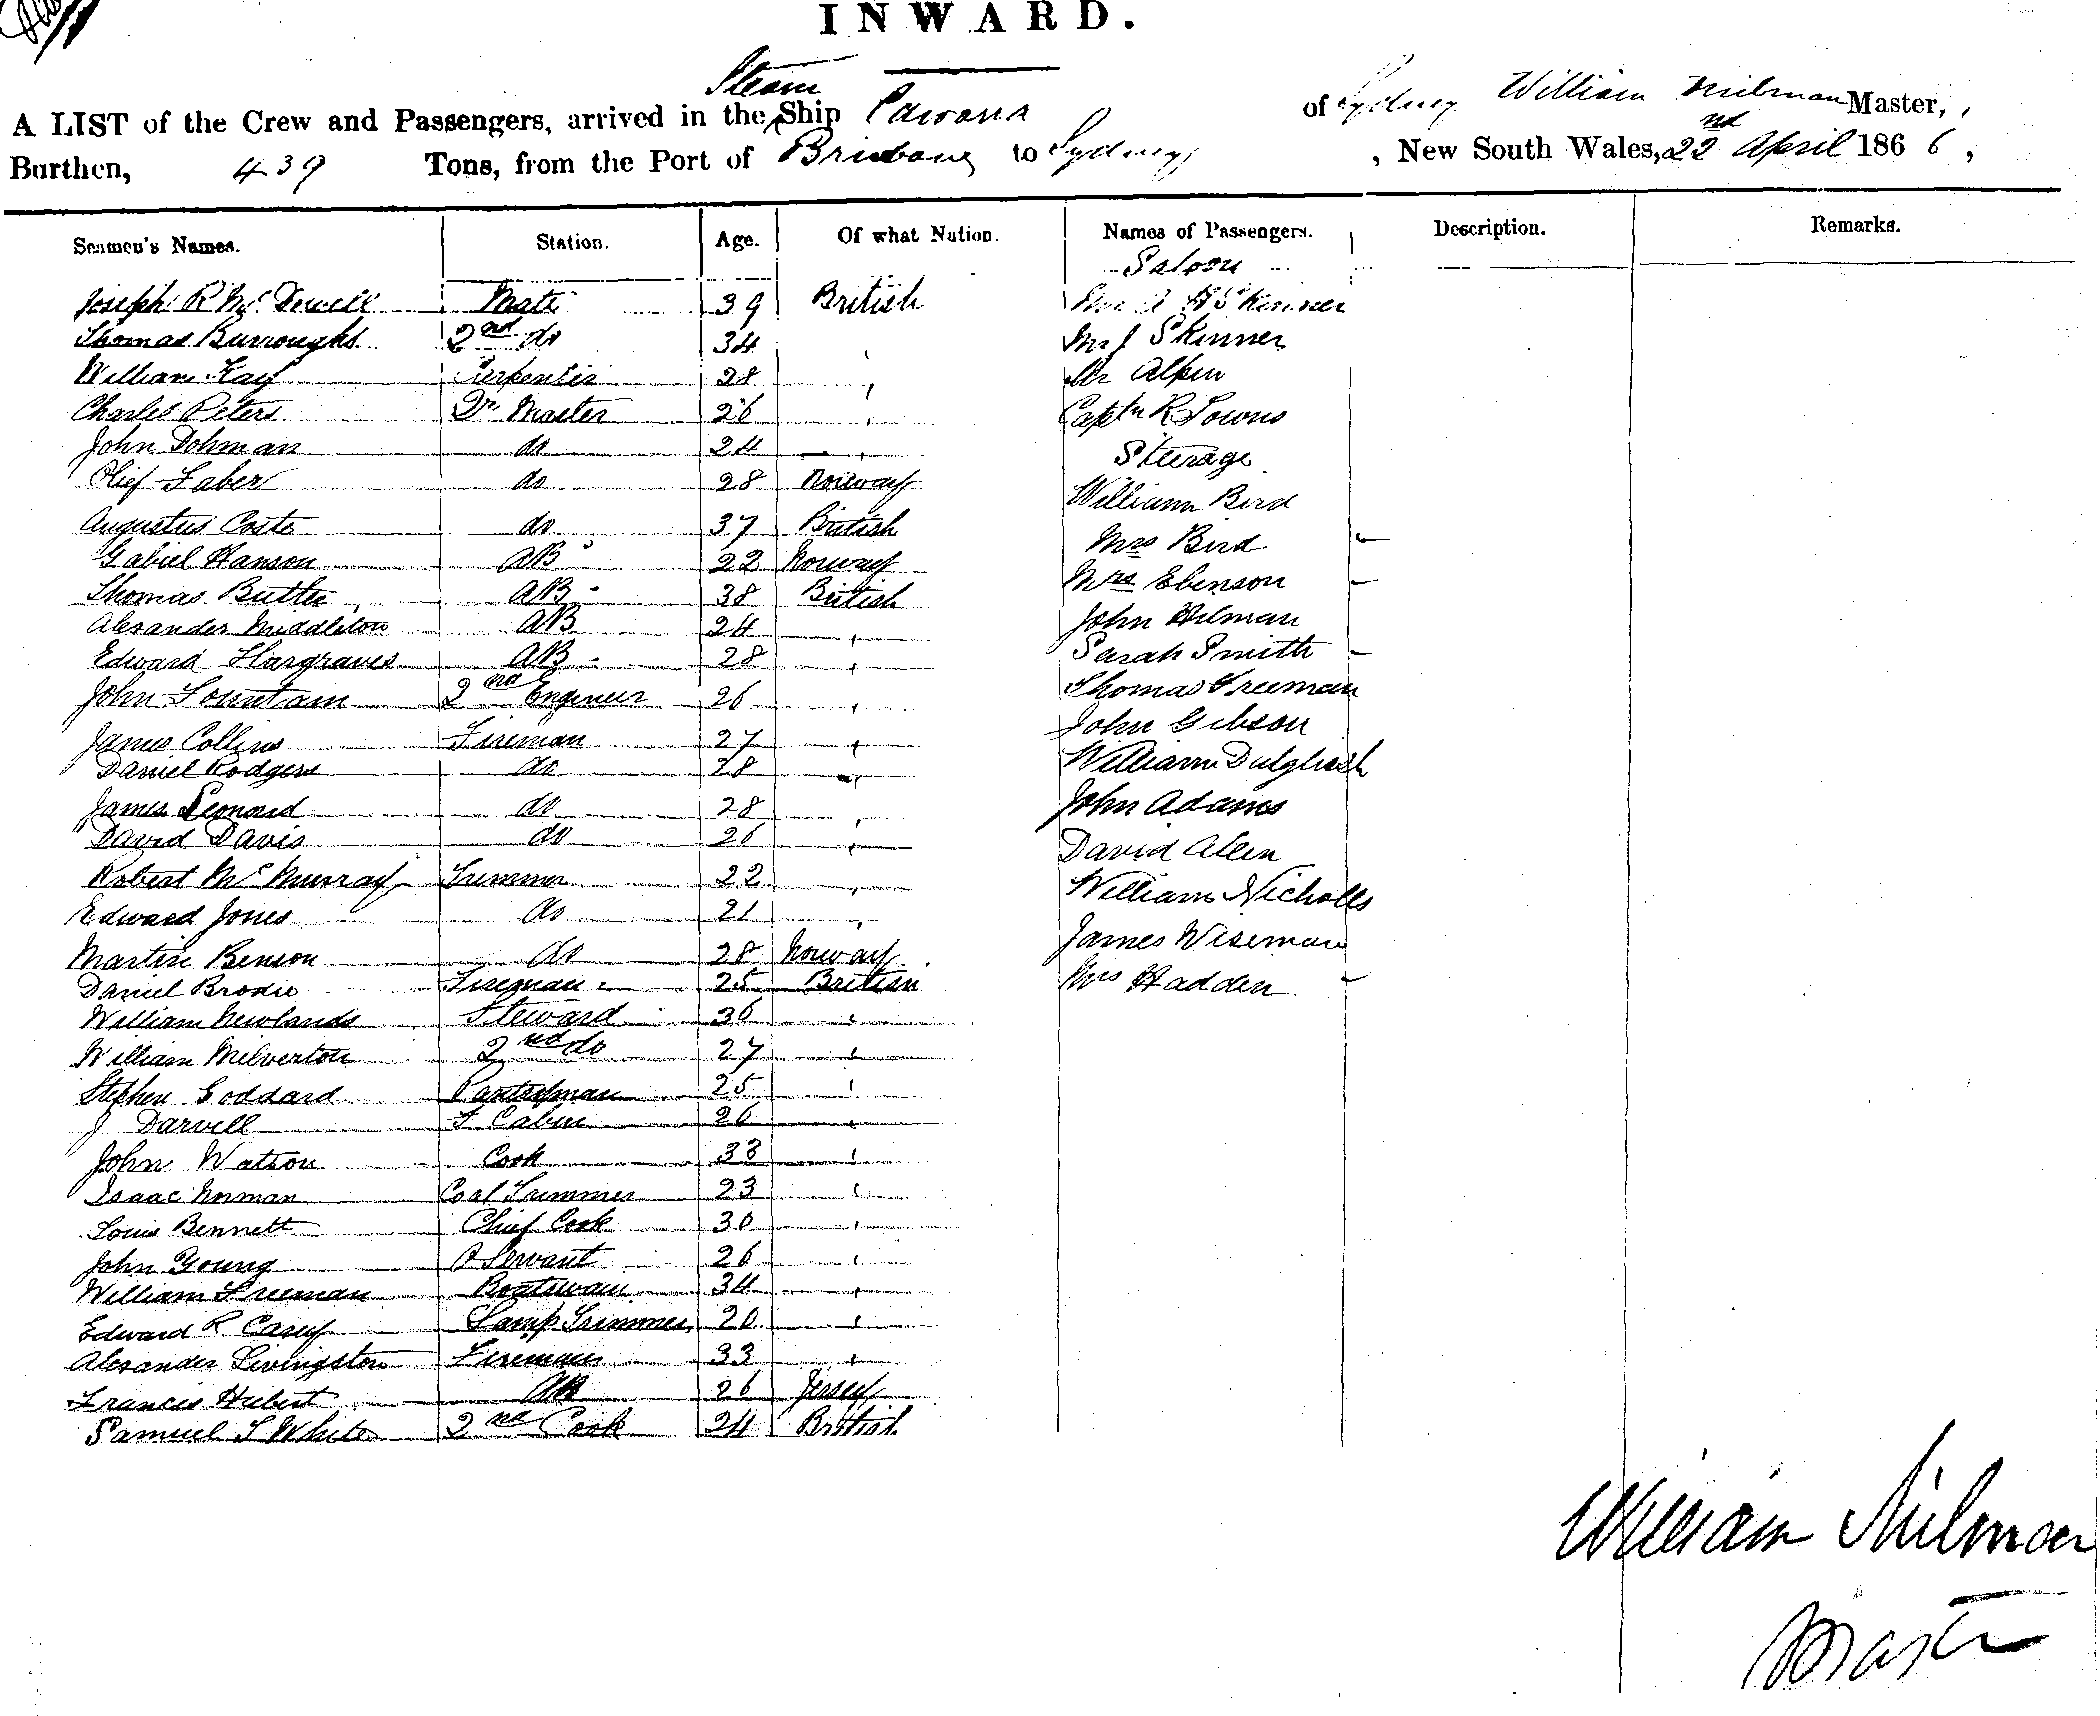 INWARD.
Steam
A LIST of the Crew and Passengers, arrived in the Ship of Sydney William Milman Master,
Burthen, 439 Tons, from the Port of Brisbane to Sydney, New South Wales, 22nd April 1866,
Seamen's Names. Station. Age. Of what Nation. Names of Passengers. Description. Remarks.
Saloon
Joseph R Mc Dowell Mate 39 British Skinner
Thomas Burroughs 2nd do 34 Mrs Skinner
William Kay Carpenter 28 " Mr Alpen
Charles Peters Qr Master 26 " Captn R Towns
John Dohman do 24 " Steerage
Olief Faber do 28 Norway William Bird
Augustus Coste do 37 British Mrs Bird
Gabiel Hanson AB 22 Norway Mrs Ebenson
Thomas Butler AB 38 British John Hilman
Alexander Middleton AB 24 " Sarah Smith
Edward Hargraves AB 28 " Thomas Freeman
John Fountain 2nd Engineer 26 " John Gibson
James Collins Fireman 27 " William Dalgliesh
Daniel Rodgers do 28 " John Adams
James Leonard do 28 " David Allen
David Davis do 26 " William Nicholls
Robert Mc Murray Trimmer 22 " James Wiseman
Edward Jones do 21 " Mrs Hadden
Martin Benson do 28 Norway
Daniel Brodie Fireman 25 British
William Newlands Steward 36 "
William Milverton 2nd do 27 "
Stephen Goddard Pantryman 25 "
J Darvell F Cabin 26 "
John Watson Cook 33 "
Isaac Norman Coal Trimmer 23 "
Louis Bennett Chief Cook 30 "
John Young Servant 26 "
William Freeman Boatswain 34 "
Edward R Casey Lamp Trimmer 20 "
Alexander Livingston Fireman 33 "
Francis Hubert AB 26 Jersey
Samuel T White 2nd Cook 24 British
William Milman
Master